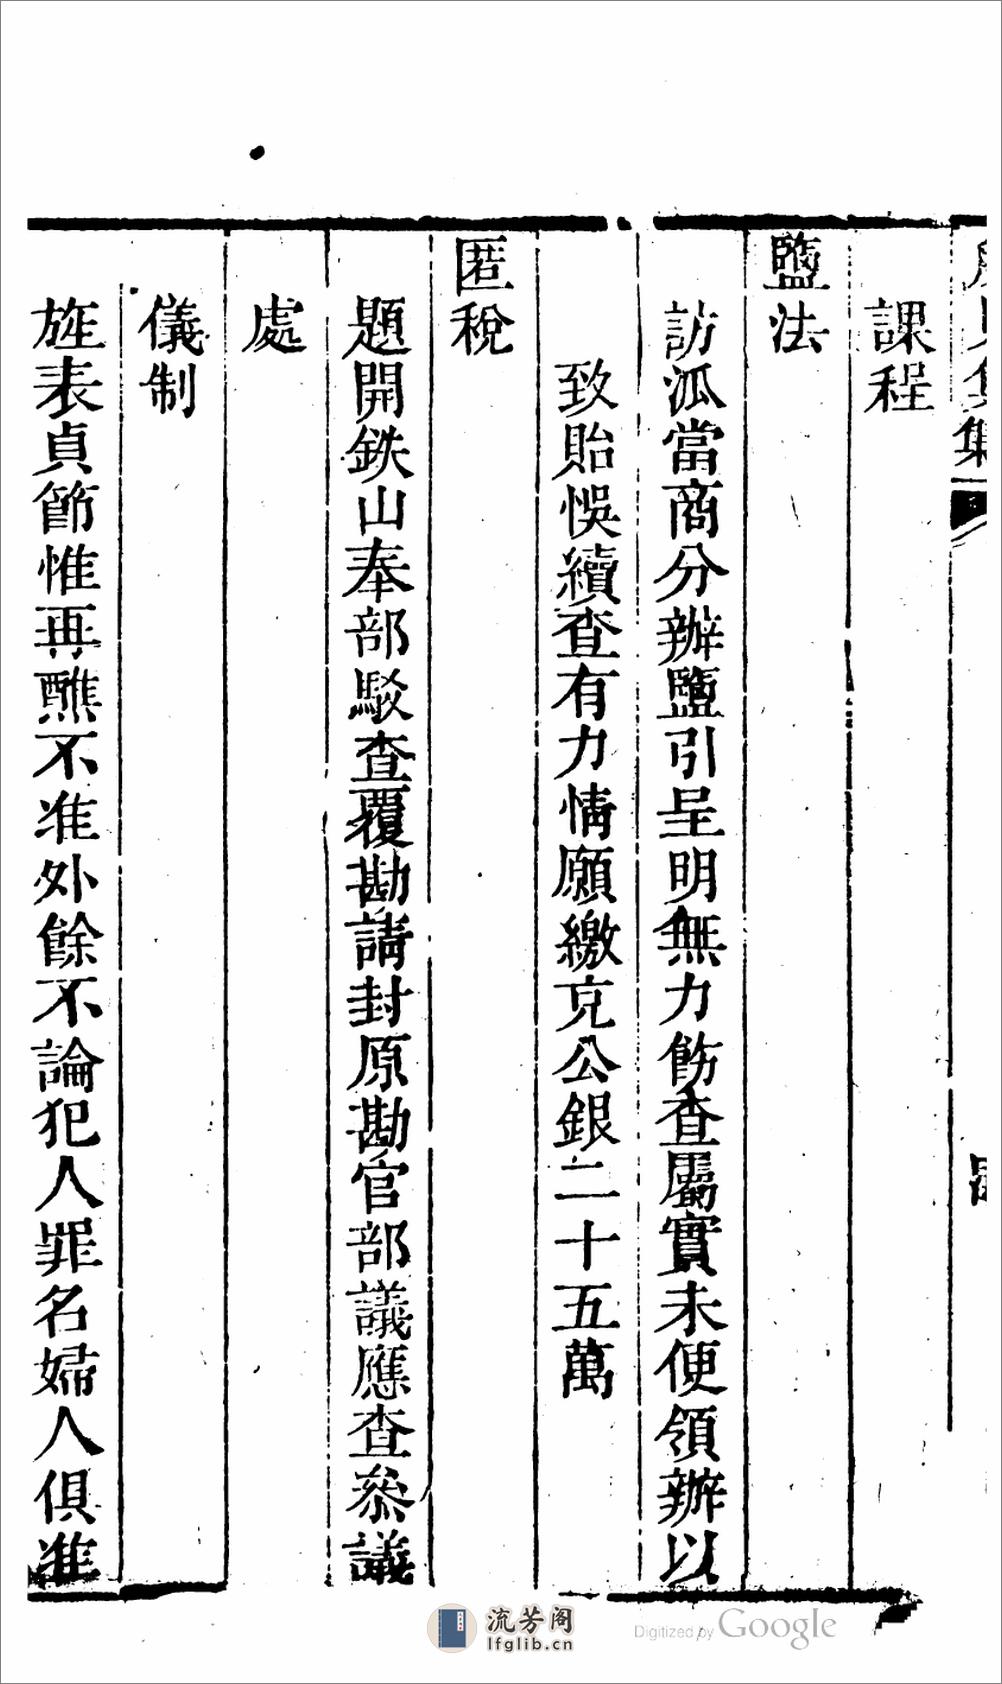 課程
鹽法
訪泒當商分辦鹽引呈明無力飭查屬實未便領辦以
致貽悞續查有力情願繳充公銀二十五萬
匿稅
題開鉄山奉部駁查覆勘請封原勘官部議應查叅議
處
儀制
旌表貞節惟再醮不准外餘不論犯人罪名婦人俱准
流芳阁
lfglib.cn
Digitized by Google